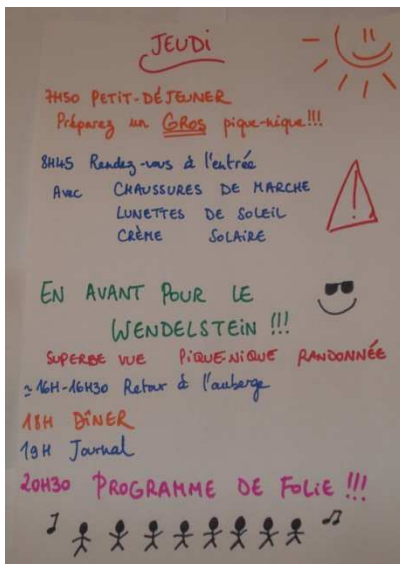 JEUDI
7H50 PETIT-DÉJEUNER
Préparez un GROS pique-nique!!!
8H45 Rendez-vous à l'entrée
Avec CHAUSSURES DE MARCHE
LUNETTES DE SOLEIL
CRÈME SOLAIRE
EN AVANT POUR LE
WENDELSTEIN !!!
SUPERBE VUE PIQUE-NIQUE RANDONNÉE
≃ 16H-16H30 Retour à l'auberge
18H DÎNER
19H Journal
20H30 PROGRAMME DE FOLIE !!!